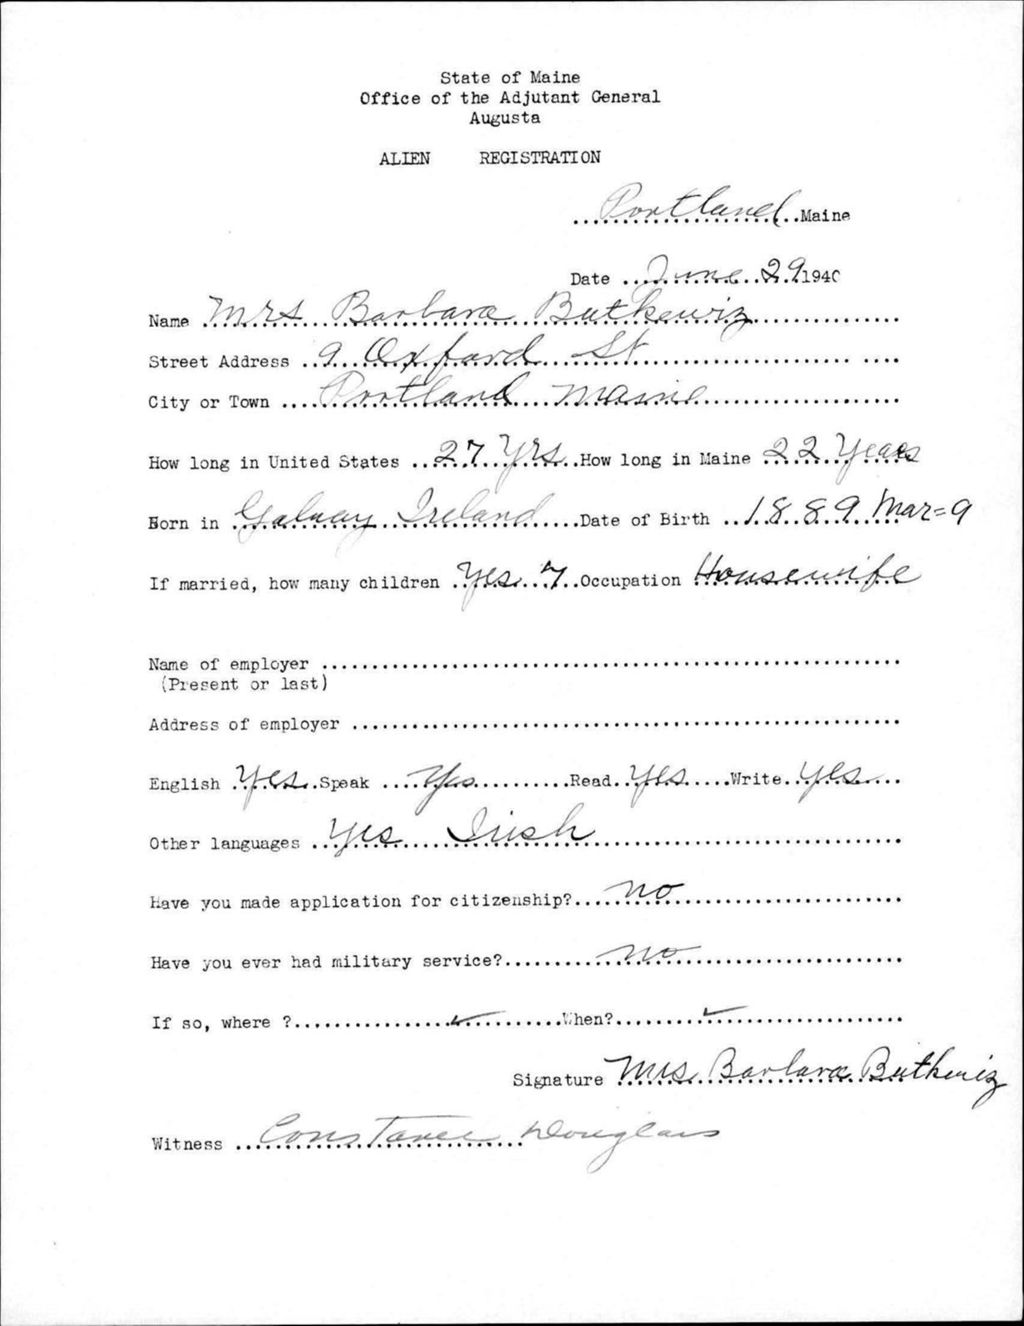 State of Maine
Office of the Adjutant General
Augusta
ALIEN REGISTRATION
Portland Maine
Date June 29 1940
Name Mrs Barbara Butkewiz
Street Address 9 Oxford St
City or Town Portland Maine
How long in United States 27 Yrs How long in Maine 22 Years
Born in Galway Ireland Date of Birth 1889 Mar=9
If married, how many children Yes 7 Occupation Housewife
Name of employer
(Present or last)
Address of employer
English Yes Speak Yes Read Yes Write Yes
Other languages Yes Irish
Have you made application for citizenship? no
Have you ever had military service? no
If so, where ? ✓ When? ✓
Signature Mrs Barbara Butkewiz
Witness Constance Douglass